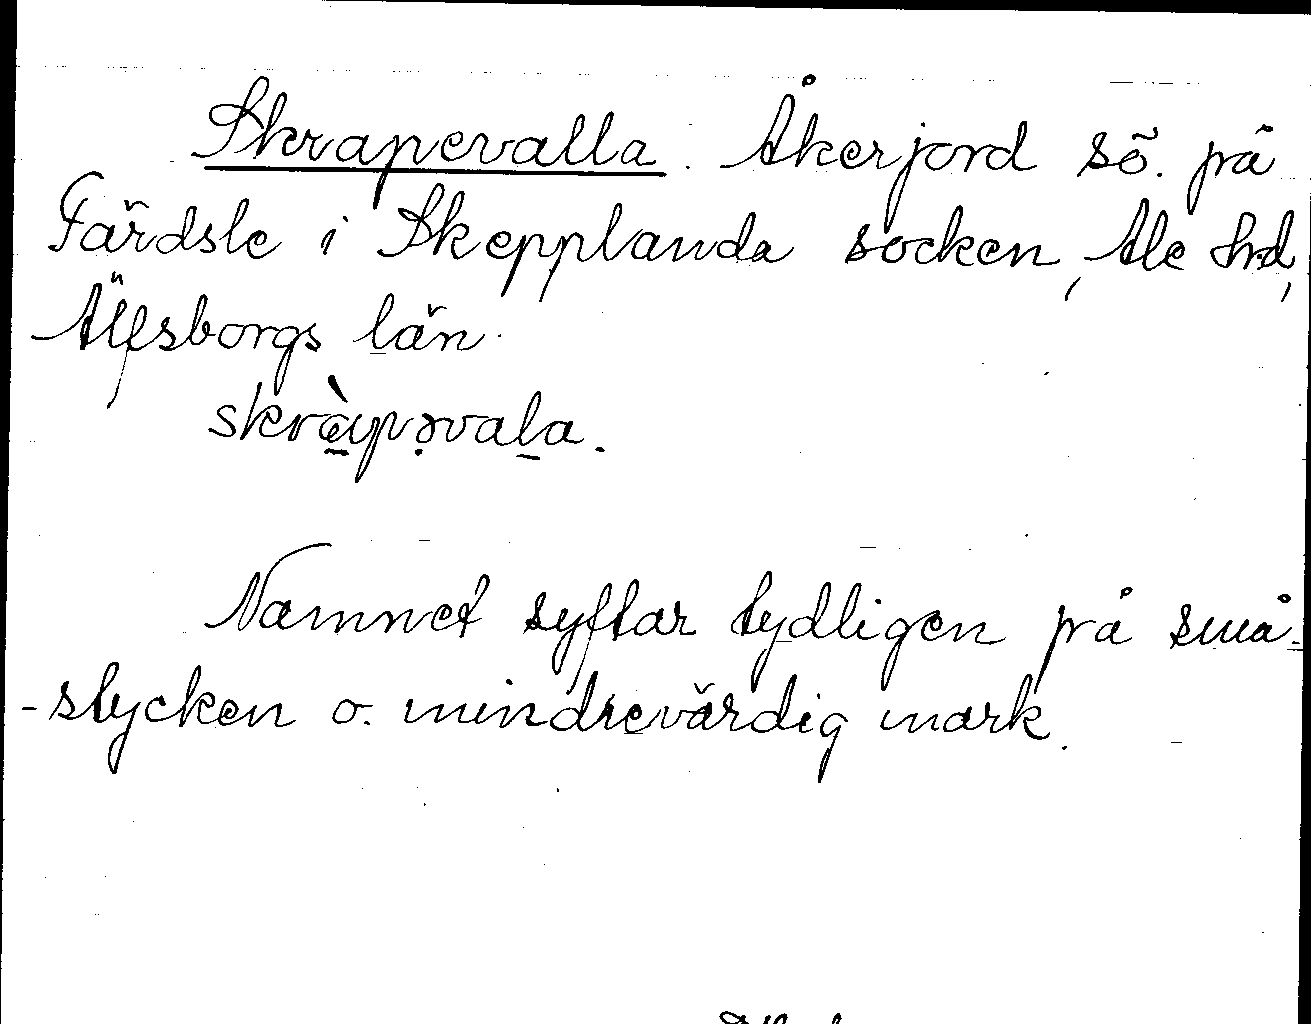 Skrapevalla. Åkerjord sö. på
Färdsle i Skepplanda socken, Ale hrd,
Älfsborgs län.
skràpəvala.
Namnet syftar tydligen på små-
-stycken o. mindrevärdig mark.